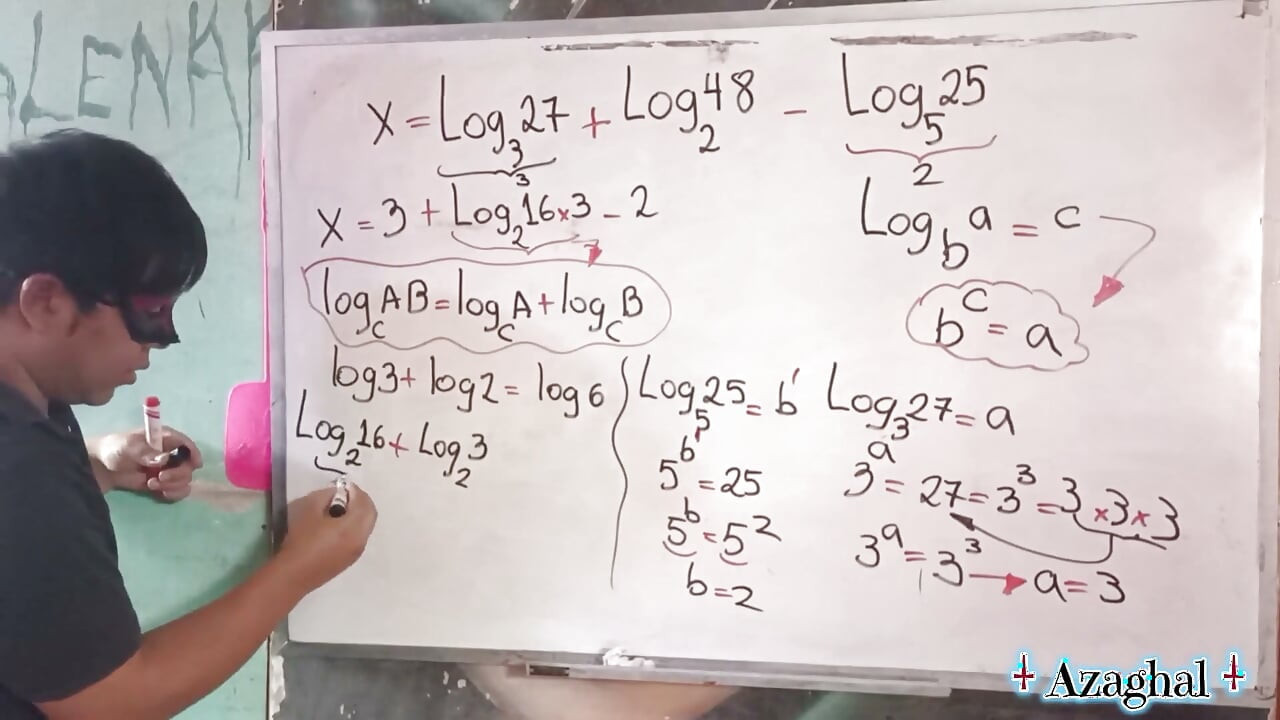 LENK
X = Log₃27 + Log₂48 - Log₅25
3
2
X = 3 + Log₂16×3 - 2
Log_b a = c
log_C AB = log_C A + log_C B
b^c = a
log3 + log2 = log6
Log₂16 + Log₂3
Log₅25 = b
5^b = 25
5^b = 5²
b = 2
Log₃27 = a
3^a = 27 = 3³ = 3×3×3
3^a = 3³ → a = 3
Azaghal